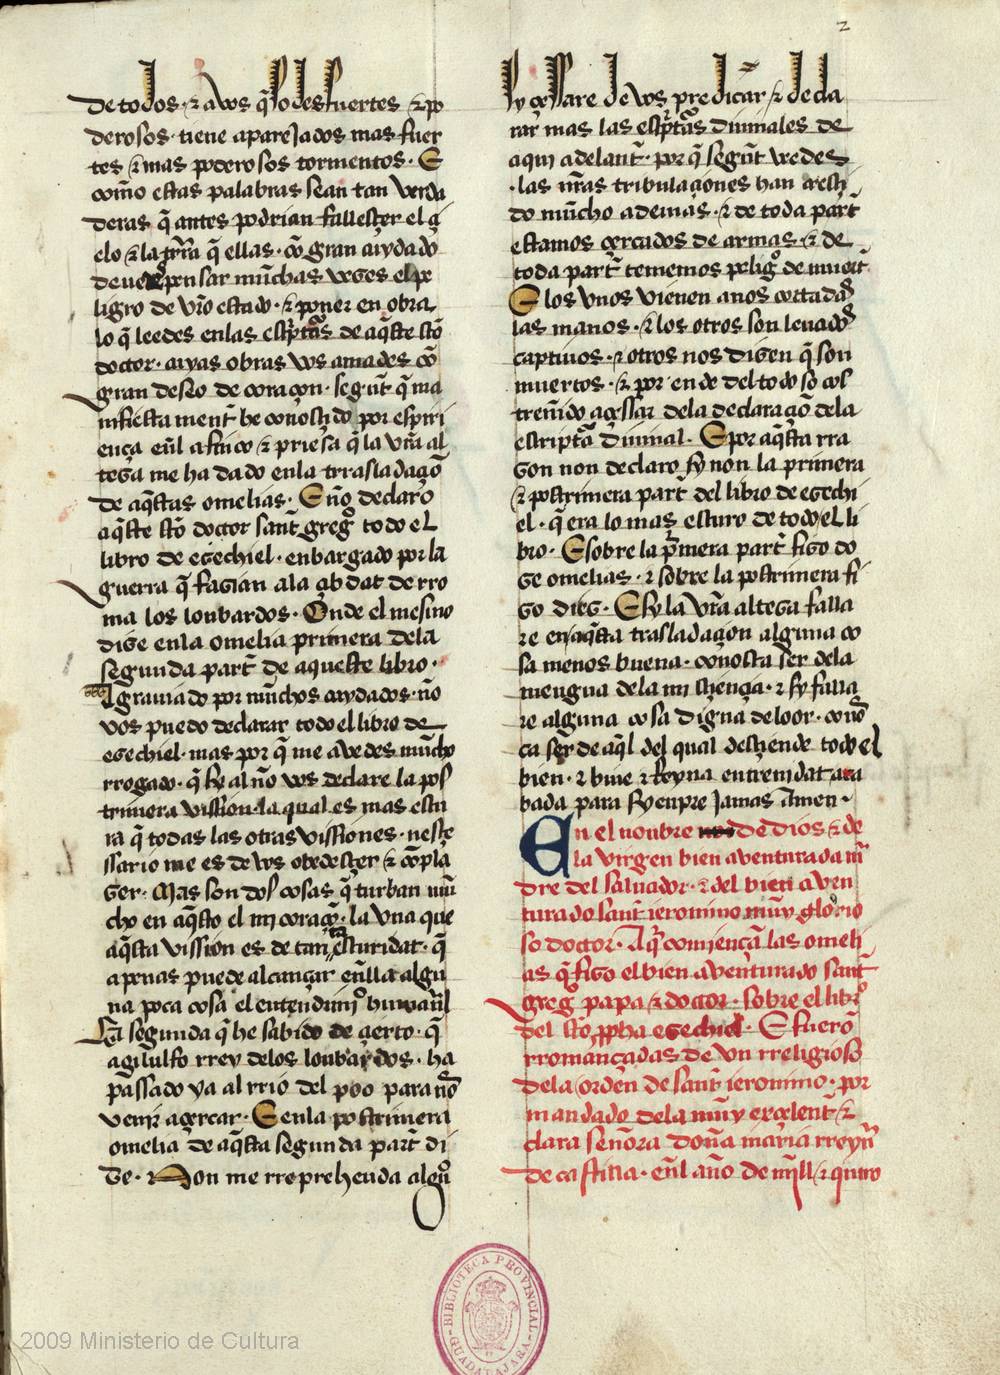 2
de todos · ⁊ a vos q̃ sodes fuertes ⁊ po
derosos · tiene aparejados mas fuer
tes ⁊ mas poderosos tormentos · E
com̃o estas palabras sean tan verda
deras q̃ antes podrian fallesçer el çi
elo ⁊ la trr̃a q̃ ellas · cõ gran cuydado
deue pensar mũchas veçes el pe
ligro de vr̃o estado · ⁊ poner en obra
lo q̃ leedes en las esc̃ptas de aq̃ste sc̃o
doctor · cuyas obras vos amades cõ
gran deseo de coraçon · segunt̃ q̃ ma
nifiesta ment̃ he conosçido por espiri
ençia eñl afinco ⁊ priesa q̃ la vr̃a al
teza me ha dado en la trrasladaçõ
de aq̃stas omelias · E nõ declaro
aq̃ste sc̃o doctor sant̃ greg̃o todo el
libro de ezechiel · enbargado por la
guerra q̃ fazian a la çibdat de rro
ma los lonbardos · Onde el mesmo
dize en la omelia primera dela
segunda part̃ de aqueste libro ·
Agrauiado por mũchos cuydados · nõ
vos puedo declarar todo el libro de
ezechiel · mas por q̃ me avedes mũcho
rrogado · q̃ si al nõ vos declare la pos
trimera vission · la qual es mas escu
ra q̃ todas las otras vissiones · nesçe
ssario me es de vos obedesçer ⁊ cõpla
zer · Mas son dos cosas q̃ turban mũ
cho en aq̃sto el mi coraçõ · la vna que
aq̃sta vission es de tan escuridat · q̃
apenas puede alcançar eñlla algu
na poca cosa el entendimj̃o humanal
La segunda q̃ he sabido de çierto · q̃
agilulfo rrey delos lonbardos · ha
passado ya al rrio del poo para nos
venir a çercar · E en la postrimera
omelia de aq̃sta segunda part̃ di
ze · Non me rreprehenda algũo
sy çessare de vos predicar ⁊ decla
rar mas las esc̃ptas diuinales de
aqui adelant̃ · por q̃ segunt̃ vedes
· las nr̃as tribulaçiones han cresçi
do mũcho ademas · ⁊ de toda part̃
estamos çercados de armas · ⁊ de
toda part̃ tememos pelig̃o de muert̃
E los vnos vienen a nos cortadas
las manos · ⁊ los otros son leuados
captiuos · ⁊ otros nos dizen q̃ son
muertos · ⁊ por ende del todo so cos
treñido a çessar dela declaraçõ dela
escriptã diuinal · E por aq̃sta rra
zon non declaro sy non la primera
⁊ postrimera part̃ del libro de ezechi
el · q̃ era lo mas escuro de todo el li
bro · E sobre la p̃mera part̃ fizo do
ze omelias · ⁊ sobre la postrimera fi
zo diez · E sy la vr̃a alteza falla
re en aq̃sta trasladaçion alguna co
sa menos buena · conosca ser dela
mengua dela mi sçiençia · ⁊ sy falla
re alguna cosa digna de loor · conos
ca ser de aq̃l del qual desçiende todo el
bien · ⁊ biue ⁊ Reyna entrenidat aca
bada para syenpre jamas Amen ·
En el nonbre de dios ⁊ de
la virgen bien aventurada m̃
dre del saluador · ⁊ del bien aven
turado sant̃ ieronimo mũy glorio
so doctor · Aq̃ comiençã las omeli
as q̃ fizo el bien aventurado sant̃
greg̃ papa ⁊ doctor · sobre el libro
del sc̃o ꝓpha ezechiel · E fuerõ
rromançadas de vn rreligioso
dela orden de sant̃ ieronimo · por
mandado dela mũy exçelent̃ ⁊
clara señora doña maria rreyna
de castilla · eñl año de mjll ⁊ quatro
BIBLIOTECA PROVINCIAL
GUADALAJARA
2009 Ministerio de Cultura